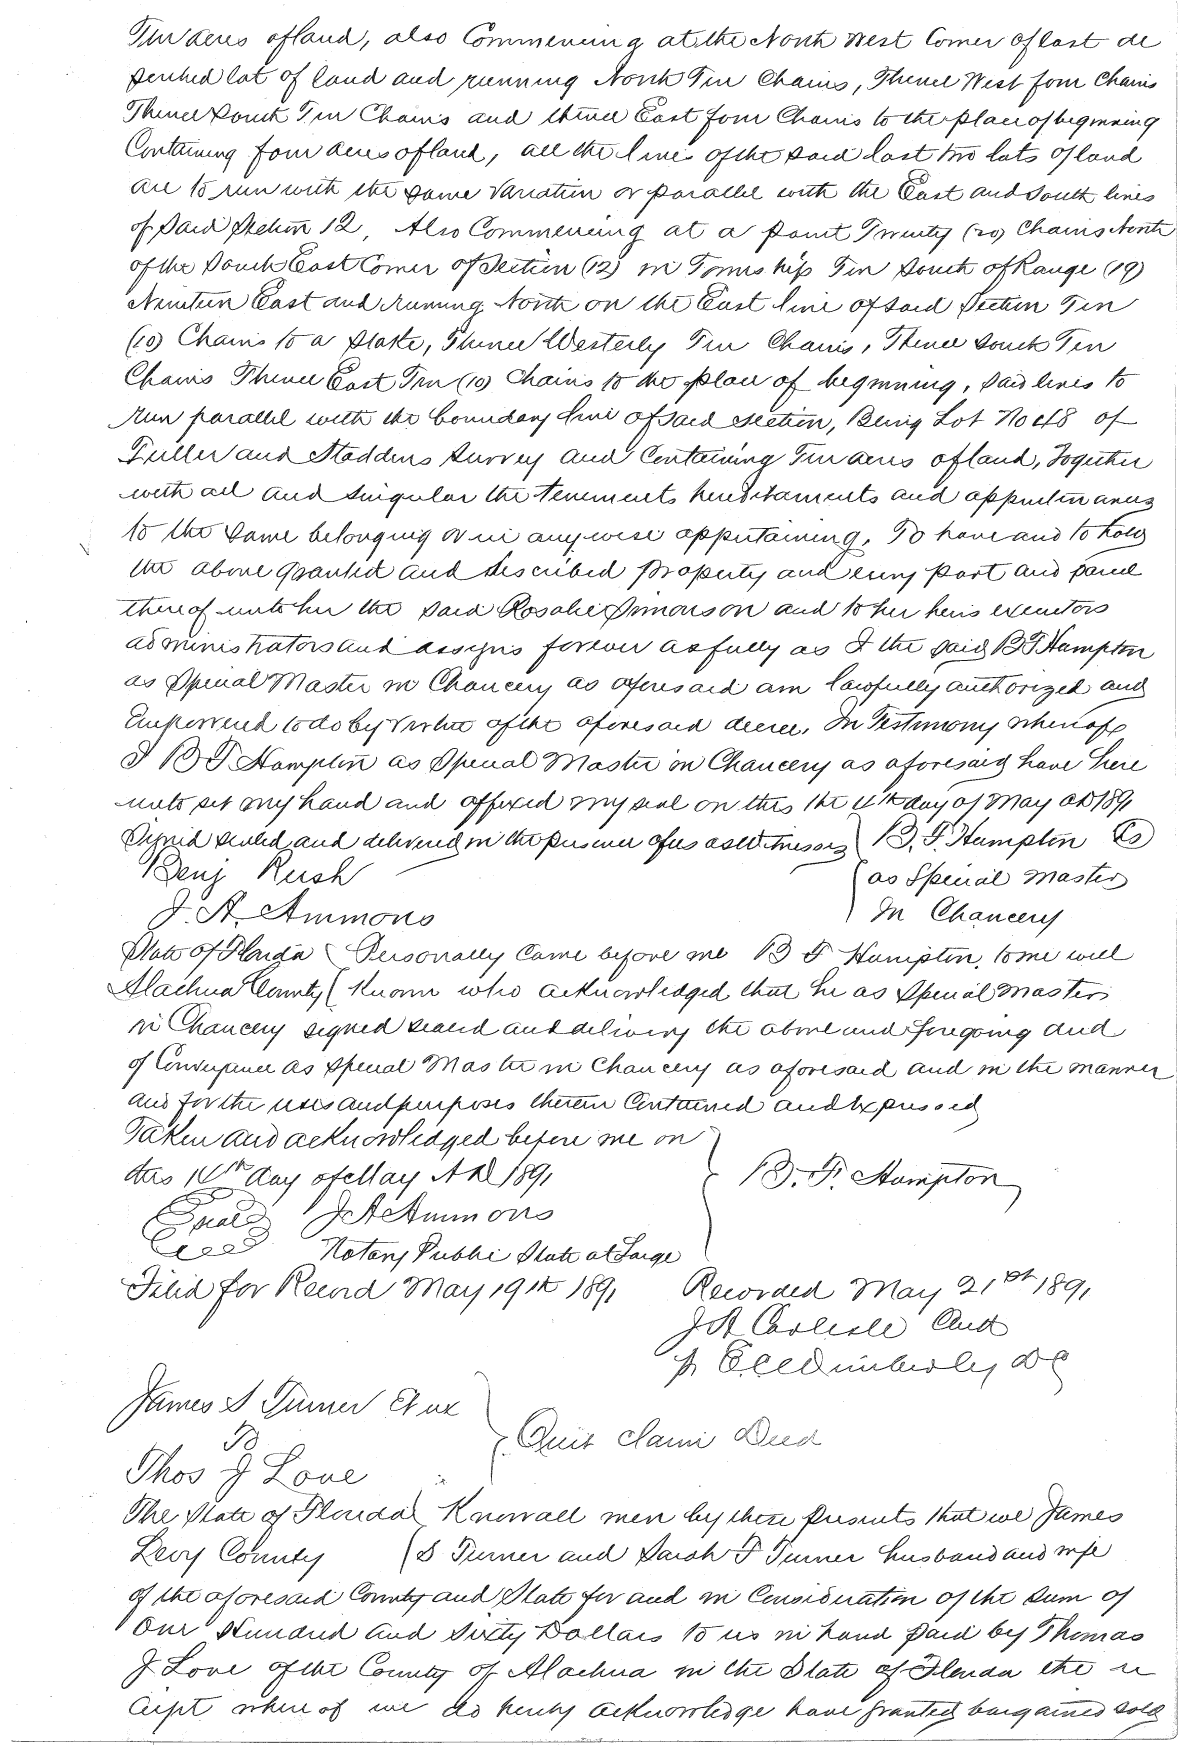 Ten acres of land, also Commencing at the North West Corner of last de
scribed lot of land and running North Ten Chains, Thence West four Chains
Thence South Ten Chains and thence East four Chains to the place of beginning
Containing four acres of land, all the lines of the said last two lots of land
are to run with the same variation or parallel with the East and South lines
of said Section 12, Also Commencing at a point Twenty (20) Chains North
of the South East Corner of Section (12) in Township Ten South of Range (19)
Nineteen East and running North on the East line of said Section Ten
(10) Chains to a stake, Thence Westerly Ten Chains, Thence South Ten
Chains Thence East Ten (10) Chains to the place of beginning, said lines to
run parallel with the boundary line of said section, Being Lot No 48 of
Fuller and Staddens Survey and Containing Ten acres of land, Together
with all and singular the tenements hereditaments and appurtenances
to the same belonging or in anywise appertaining, To have and to hold
the above granted and described property and every part and parcel
thereof unto her the said Rosalie Simonson and to her heirs executors
administrators and assigns forever as fully as I the said B F Hampton
as Special Master in Chancery as aforesaid am lawfully authorized and
Empowered to do by virtue of the aforesaid decree, In Testimony whereof
I B F Hampton as Special Master in Chancery as aforesaid have here
unto set my hand and affixed my seal on this the day of May AD 1891
Signed sealed and delivered in the presence of us as Witnesses B. F. Hampton
Benj Rush as Special Master
J. A. Ammons In Chancery
State of Florida Personally Came before me B F Hampton, to me well
Alachua County Known who acknowledged that he as Special Master
in Chancery signed sealed and delivery the above and foregoing deed
of Conveyance as Special Master in Chancery as aforesaid and in the manner
and for the uses and purposes therein Contained and Expressed
Taken and acknowledged before me on
this day of May AD 1891 B. F. Hampton
Seal J A Ammons
Notary Public State at Large
Filed for Record May 19th 1891 Recorded May 21st 1891
J A Carlisle Clk
pr Wimberly DC
James S Turner Et ux
To Quit claim Deed
Thos J Love
The State of Florida Know all men by these presents that we James
Levy County S Turner and Sarah F Turner husband and wife
of the aforesaid County and State for and in Consideration of the sum of
One Hundred and Sixty Dollars to us in hand paid by Thomas
J Love of the County of Alachua in the State of Florida the re
ceipt where of we do hereby acknowledge have granted bargained sold